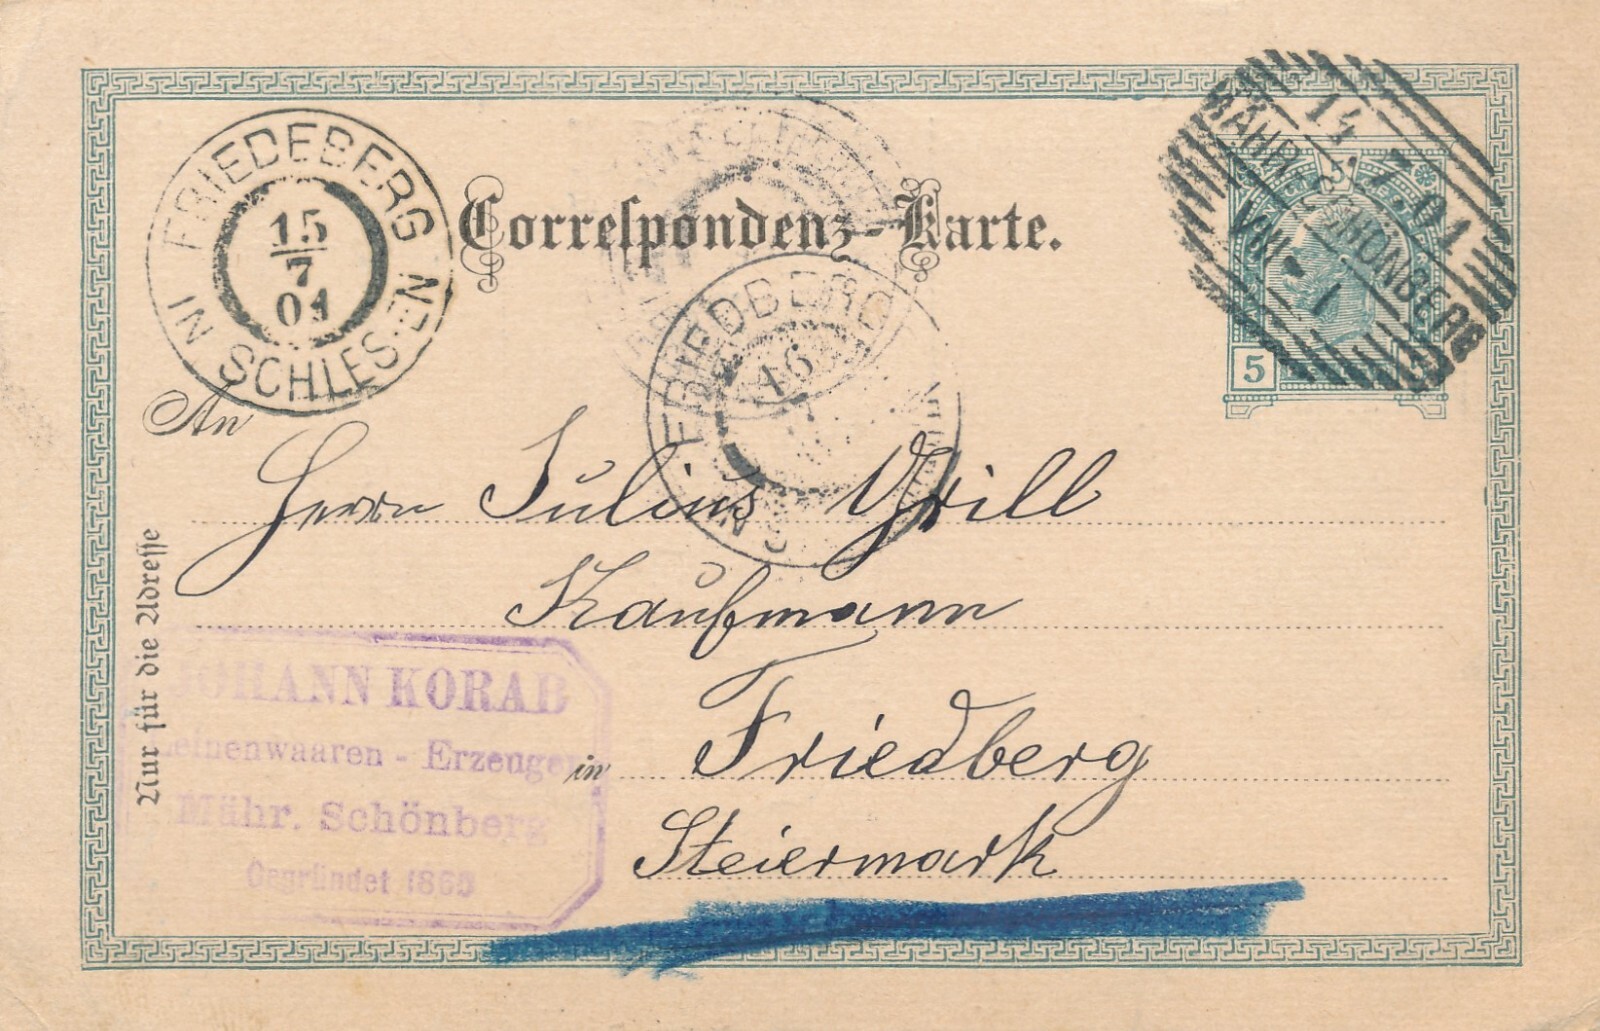 Correspondenz-Karte.
FRIEDEBERG
IN SCHLESIEN
15
7
01
MÄHR. SCHÖNBERG
14.7.01
VIII 1
5
FRIEDBERG
16
An
Herrn Julius Grill
Kaufmann
in Friedberg
Steiermark
Nur für die Adresse
JOHANN KORAB
Leinenwaaren - Erzeuger
Mähr. Schönberg
Gegründet 1860